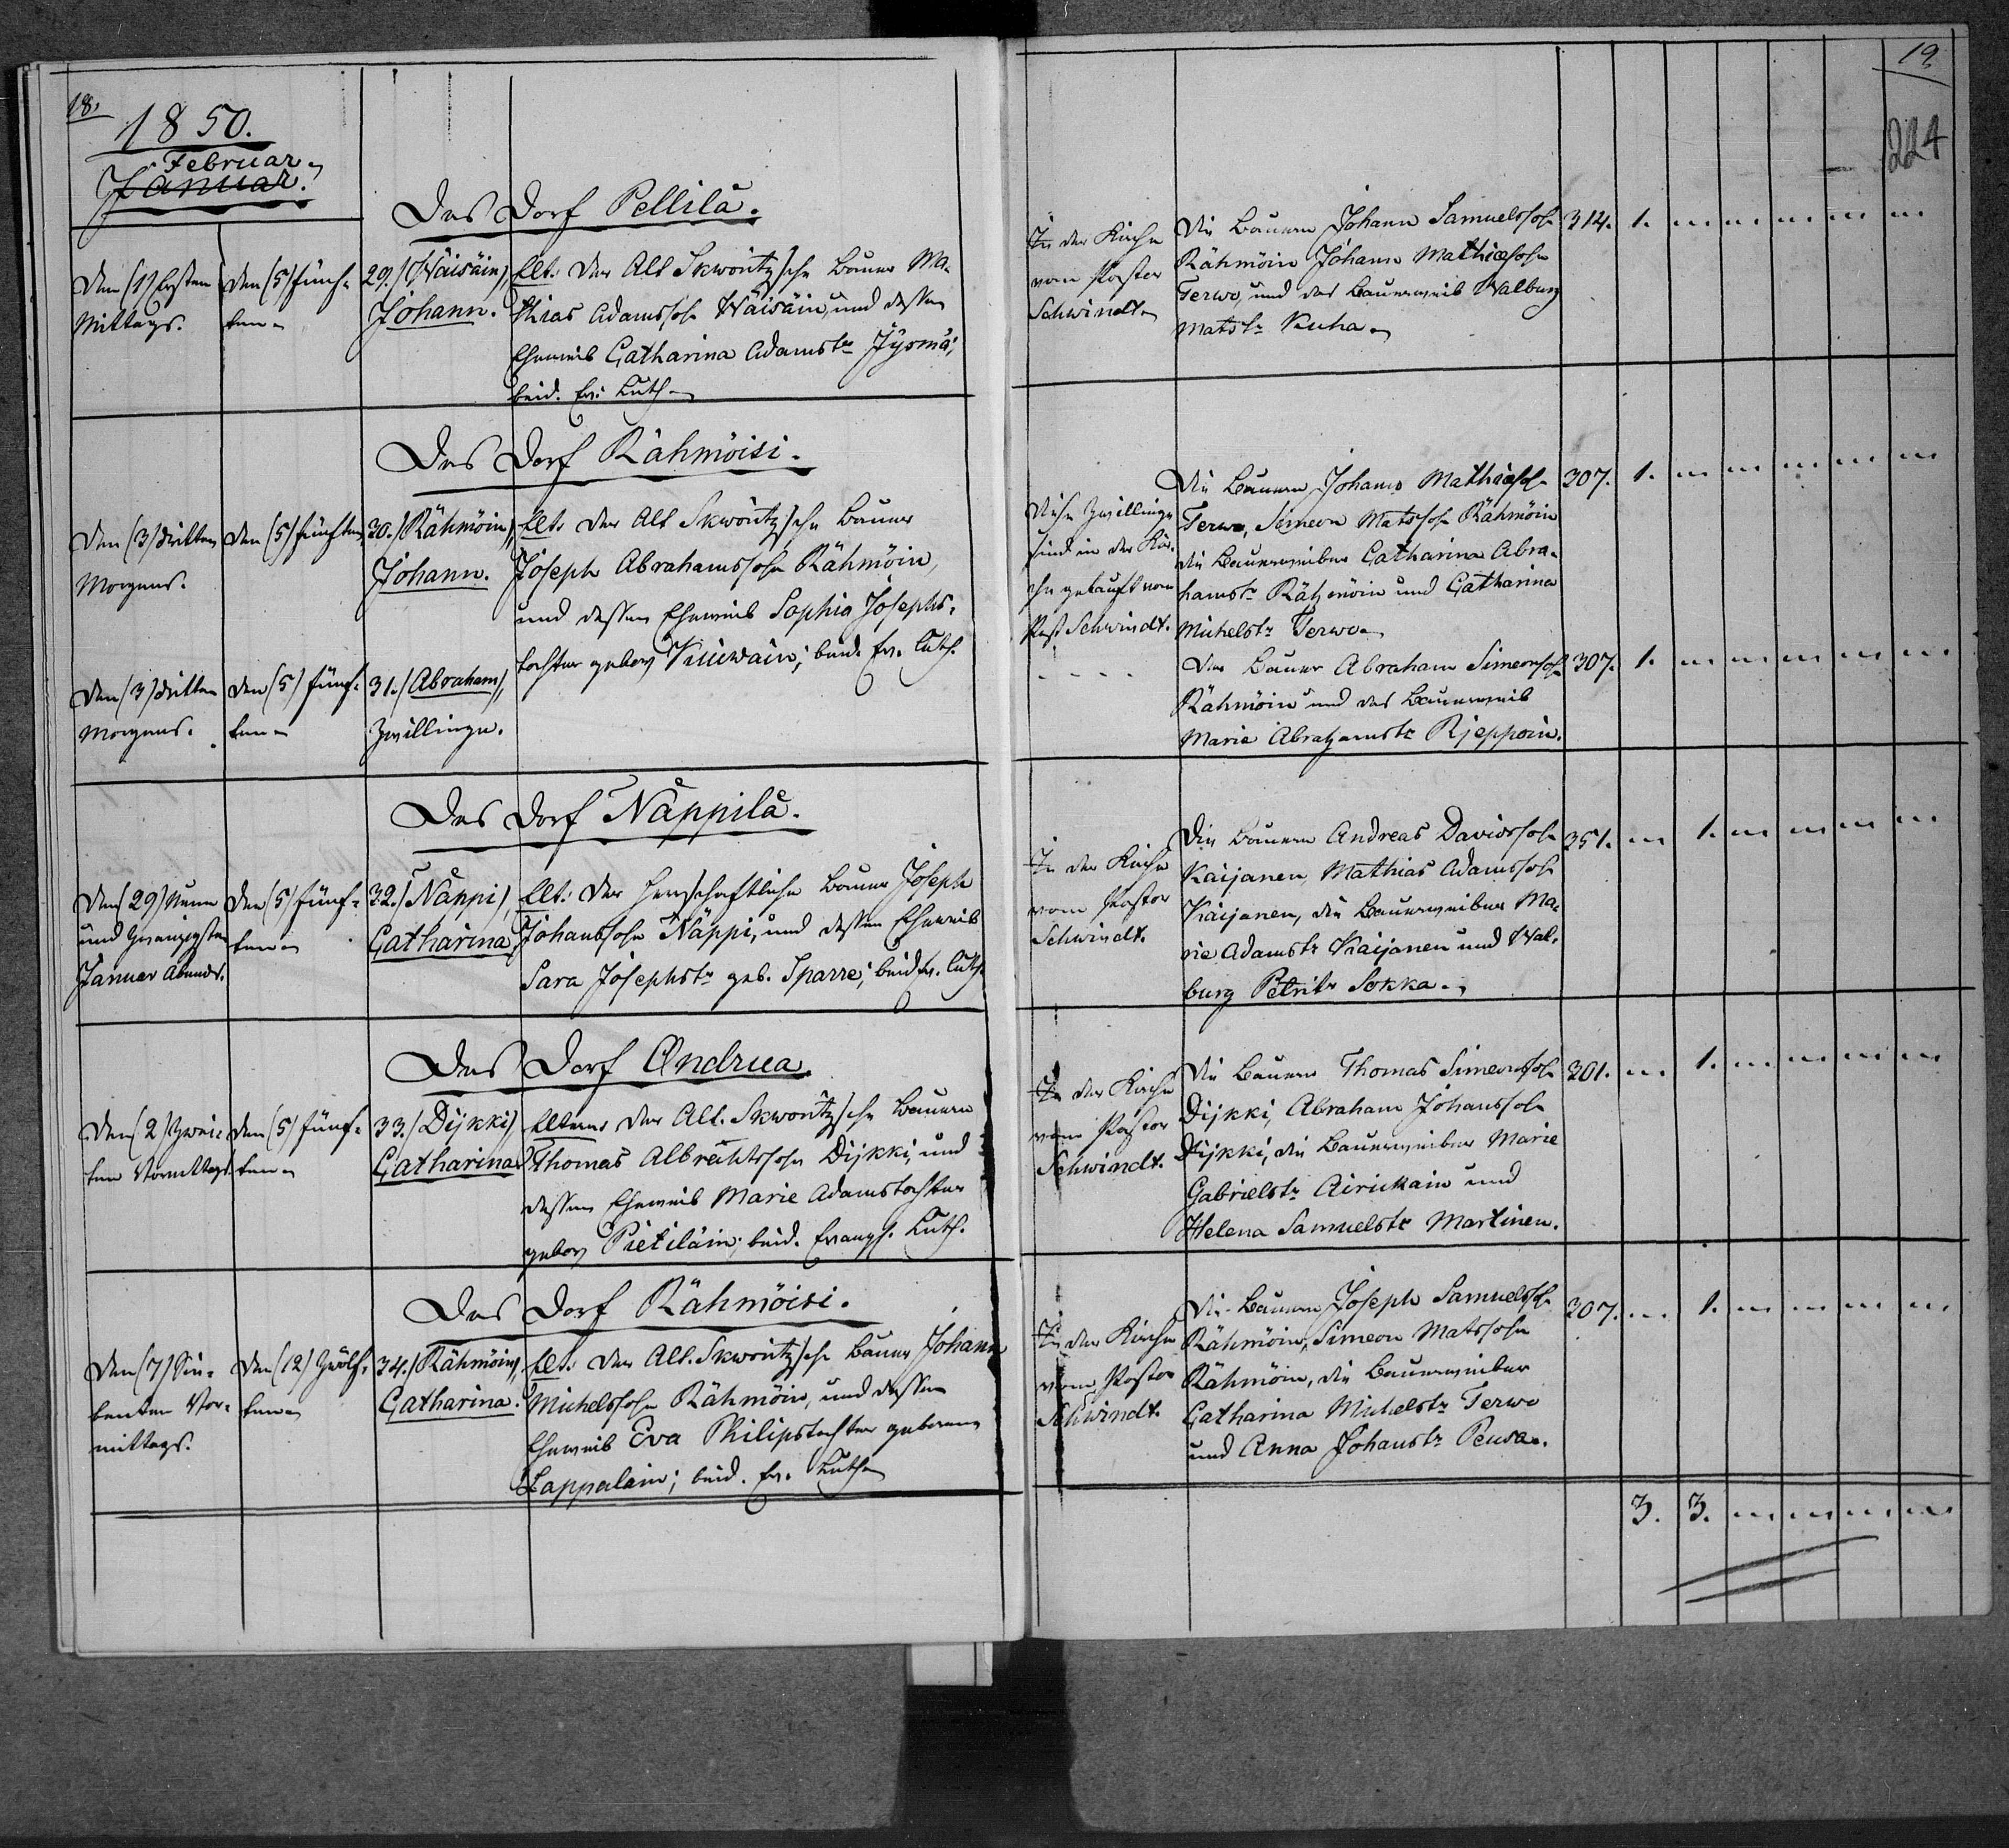 18.
1850.
Februar.
Januar.
Das Dorf Pellilä.
Den (1) Ersten
Mittags.
Den (5) fünf-
ten
29./ (Wäisäin),
Johann.
Elt: Der Alt Skworitz/sche Bauer Ma-
thias Adamssohn Wäisäin, und dessen
Eheweib Catharina Adamstr Jysmä;
beid. Ev. Luth.
Das Dorf Rähmöisi.
Den (3) dritten
Morgens.
Den (5) fünften
30./ Rähmöin),
Johann.
Elt: Der Alt Skworitz/sche Bauer
Joseph Abrahamssohn Rähmöin,
und dessen Eheweib Sophia Josephs-
tochter gebor. Kuiwain; beid. Ev. Luth.
Den (3) dritten
Morgens.
Den (5) fünf-
ten
31./ Abraham),
Zwillinge.
Das Dorf Näppilä.
Den (29) Neun
und Zwanzigsten
Januar Abends.
Den (5) fünf-
ten
32./ Näppi)
Catharina
Elt: Der Herrschaftliche Bauer Joseph
Johanssohn Näppi, und dessen Eheweib
Sara Josephstr geb. Sparre; beid Ev. Luth.
Das Dorf Ondrua.
Den (2) Zwei-
ten Vormittags.
Den (5) fünf-
ten
33./ Dijkki),
Catharina
Eltern: Der Alt. Skworitz/sche Bauern
Thomas Albrechtssohn Dijkki, und
dessen Eheweib Marie Adamstochter
gebor Pietiläin; beid. Evangl. Luth.
Das Dorf Rähmöisi.
Den (7) Sie-
benten Vor-
mittags.
Den (12) Zwölf-
ten
34./ Rähmöin),
Catharina.
Elt: Der Alt. Skworitz/sche Bauer Johann
Michelssohn Rähmöin, und dessen
Eheweib Eva Philipstochter geborene
Lappalain; beid. Ev. Luth.
19
224
In der Kirche
vom Pastor
Schwindt.
Die Bauern Johann Samuelssohn
Rähmöin Johann Mathiassohn
Terwo, und das Bauerweib Walburg
Matstr Kuha.
314. 1.
Diese Zwillinge
sind in der Kir-
che getauft vom
Past Schwindt.
Die Bauern Johann Mathiassohn
Terwo, Simeon Matssohn Rähmöin
die Bauerweiber Catharina Abra-
hamstr Rähmöin und Catharina
Michelstr Terwo.
307. 1.
Der Bauer Abraham Simeonssohn
Rähmöin und das Bauerweib
Marie Abrahamstr Rjeppoin.
307. 1.
In der Kirche
vom Pastor
Schwindt.
Die Bauern Andreas Davidssohn
Kaijanen, Mathias Adamssohn
Kaijanen, die Bauerweiber Ma-
rie Adamstr Kaijanen und Wal-
burg Petritr Sokka.
351. 1.
In der Kirche
vom Pastor
Schwindt.
Die Bauern Thomas Simeonssohn
Dijkki, Abraham Johanssohn
Dijkki, die Bauerweiber Marie
Gabrielstr Airickain und
Helena Samuelstr Martinen.
301. 1.
In der Kirche
vom Pastor
Schwindt.
Die Bauern Joseph Samuelssohn
Rähmöin, Simeon Matssohn
Rähmöin, die Bauerweiber
Catharina Michelstr Terwo
und Anna Johanstr Peusa.
307. 1.
3. 3.